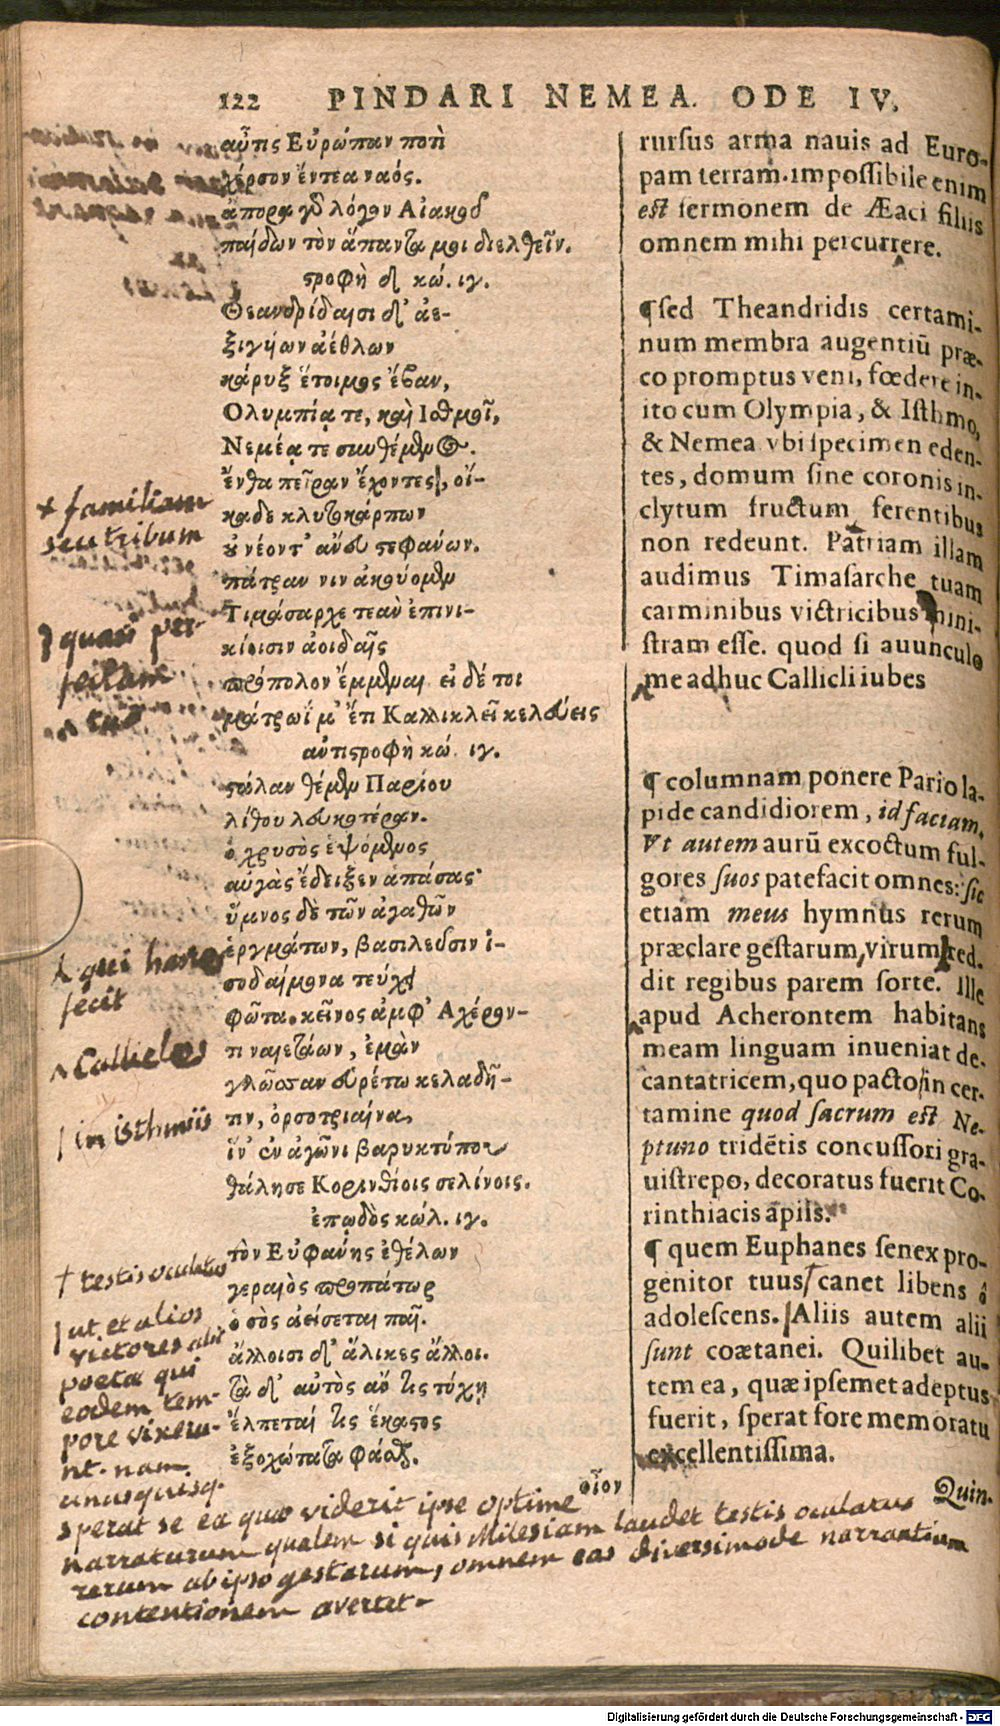 122 PINDARI NEMEA. ODE IV.
αὖτις Εὐρώπαν ποτὶ
χέρσον ἔντεα ναός.
ἄπορα γὸ λόγον Αἰακοῦ
παίδων τὸν ἅπαντα μοι διελθεῖν.
στροφὴ δ κώ. ιγ.
Θεανδρίδαισι δ' ἀε-
ξιγύων ἀέθλων
κάρυξ ἕτοιμος ἔβαν,
Ολυμπίᾳ τε, καὶ Ιοθμοῖ,
Νεμέᾳ τε συνθέμενος.
ἔνθα πεῖραν ἔχοντες, οἴ-
καδε κλυτοκάρπων
οὐ νέοντ' αὔευ στεφάνων.
πάτραν νιν ἀκούομεν
Τιμάσαρχε τεὰν ἐπινι-
κίοισιν ἀοιδαῖς
πρόπολον ἔμμεναι εἰ δέ τοι
μάτρωΐ μ' ἔτι Καλλικλεῖ κελεύεις
αὐτιστροφὴ κώ. ιγ.
στάλαν θέμεν Παρίου
λίθου λευκοτέραν.
ὁ χρυσὸς ἑψόμενος
αὐγὰς ἔδειξεν ἁπάσας·
ὕμνος δὲ τῶν ἀγαθῶν
ἐργμάτων, βασιλεῦσιν ἰ-
σοδαίμονα τεύχει
φῶτα. κεῖνος ἀμφ' Αχέρον-
τι ναιετάων, ἐμὰν
γλῶσσαν εὑρέτω κελαδῆ-
τιν, ὀρσοτριαίνα
ἵν' ἐν ἀγῶνι βαρυκτύπου
θάλησε Κορινθίοις σελίνοις.
ἐπωδὸς κώλ. ιγ.
τὸν Εὐφαύης ἐθέλων
γεραιὸς προπάτωρ
ὁ σὸς ἀείσεται παῖ.
ἄλλοισι δ' ἅλικες ἄλλοι.
τὰ δ' αὐτὸς ἄν τις τύχῃ
ἔλπεταί τις ἕκαστος
ἐξοχώτατα φάσθαι.
οἷον
rursus arma nauis ad Euro-
pam terram. impossibile enim
est sermonem de Æaci filiis
omnem mihi percurrere.
¶sed Theandridis certami-
num membra augentiū præ-
co promptus veni, fœdere in-
ito cum Olympia, & Isthmo,
& Nemea vbi specimen eden-
tes, domum sine coronis in-
clytum fructum ferentibus
non redeunt. Patriam illam
audimus Timasarche tuam
carminibus victricibus mini-
stram esse. quod si auunculo
me adhuc Callicli iubes
¶ columnam ponere Pario la-
pide candidiorem, id faciam.
Vt autem aurū excoctum ful-
gores suos patefacit omnes: sic
etiam meus hymnus rerum
præclare gestarum, virum red-
dit regibus parem sorte. Ille
apud Acherontem habitans
meam linguam inueniat de-
cantatricem, quo pacto in cer-
tamine quod sacrum est Ne-
ptuno tridētis concussori gra-
uistrepo, decoratus fuerit Co-
rinthiacis apiis.
¶ quem Euphanes senex pro-
genitor tuus canet libens ô
adolescens. Aliis autem alii
sunt coætanei. Quilibet au-
tem ea, quæ ipsemet adeptus
fuerit, sperat fore memoratu
excellentissima.
Quin-
+ familiam
seu tribum
quasi per-
qui hanc
fecit
^ Callicles
| in isthmiis
† testis oculatus
| ut et alios
victores alii
poeta qui
eodem tem-
pore vixeru-
nt. nam
unusquisq.
sperat se ea quæ viderit ipse optime
narraturum qualem si quis Milesiam laudet testis ocularus
rerum ab ipso gestarum, omnem eas diversimode narrantium
contentionem avertet.
Digitalisierung gefördert durch die Deutsche Forschungsgemeinschaft - DFG